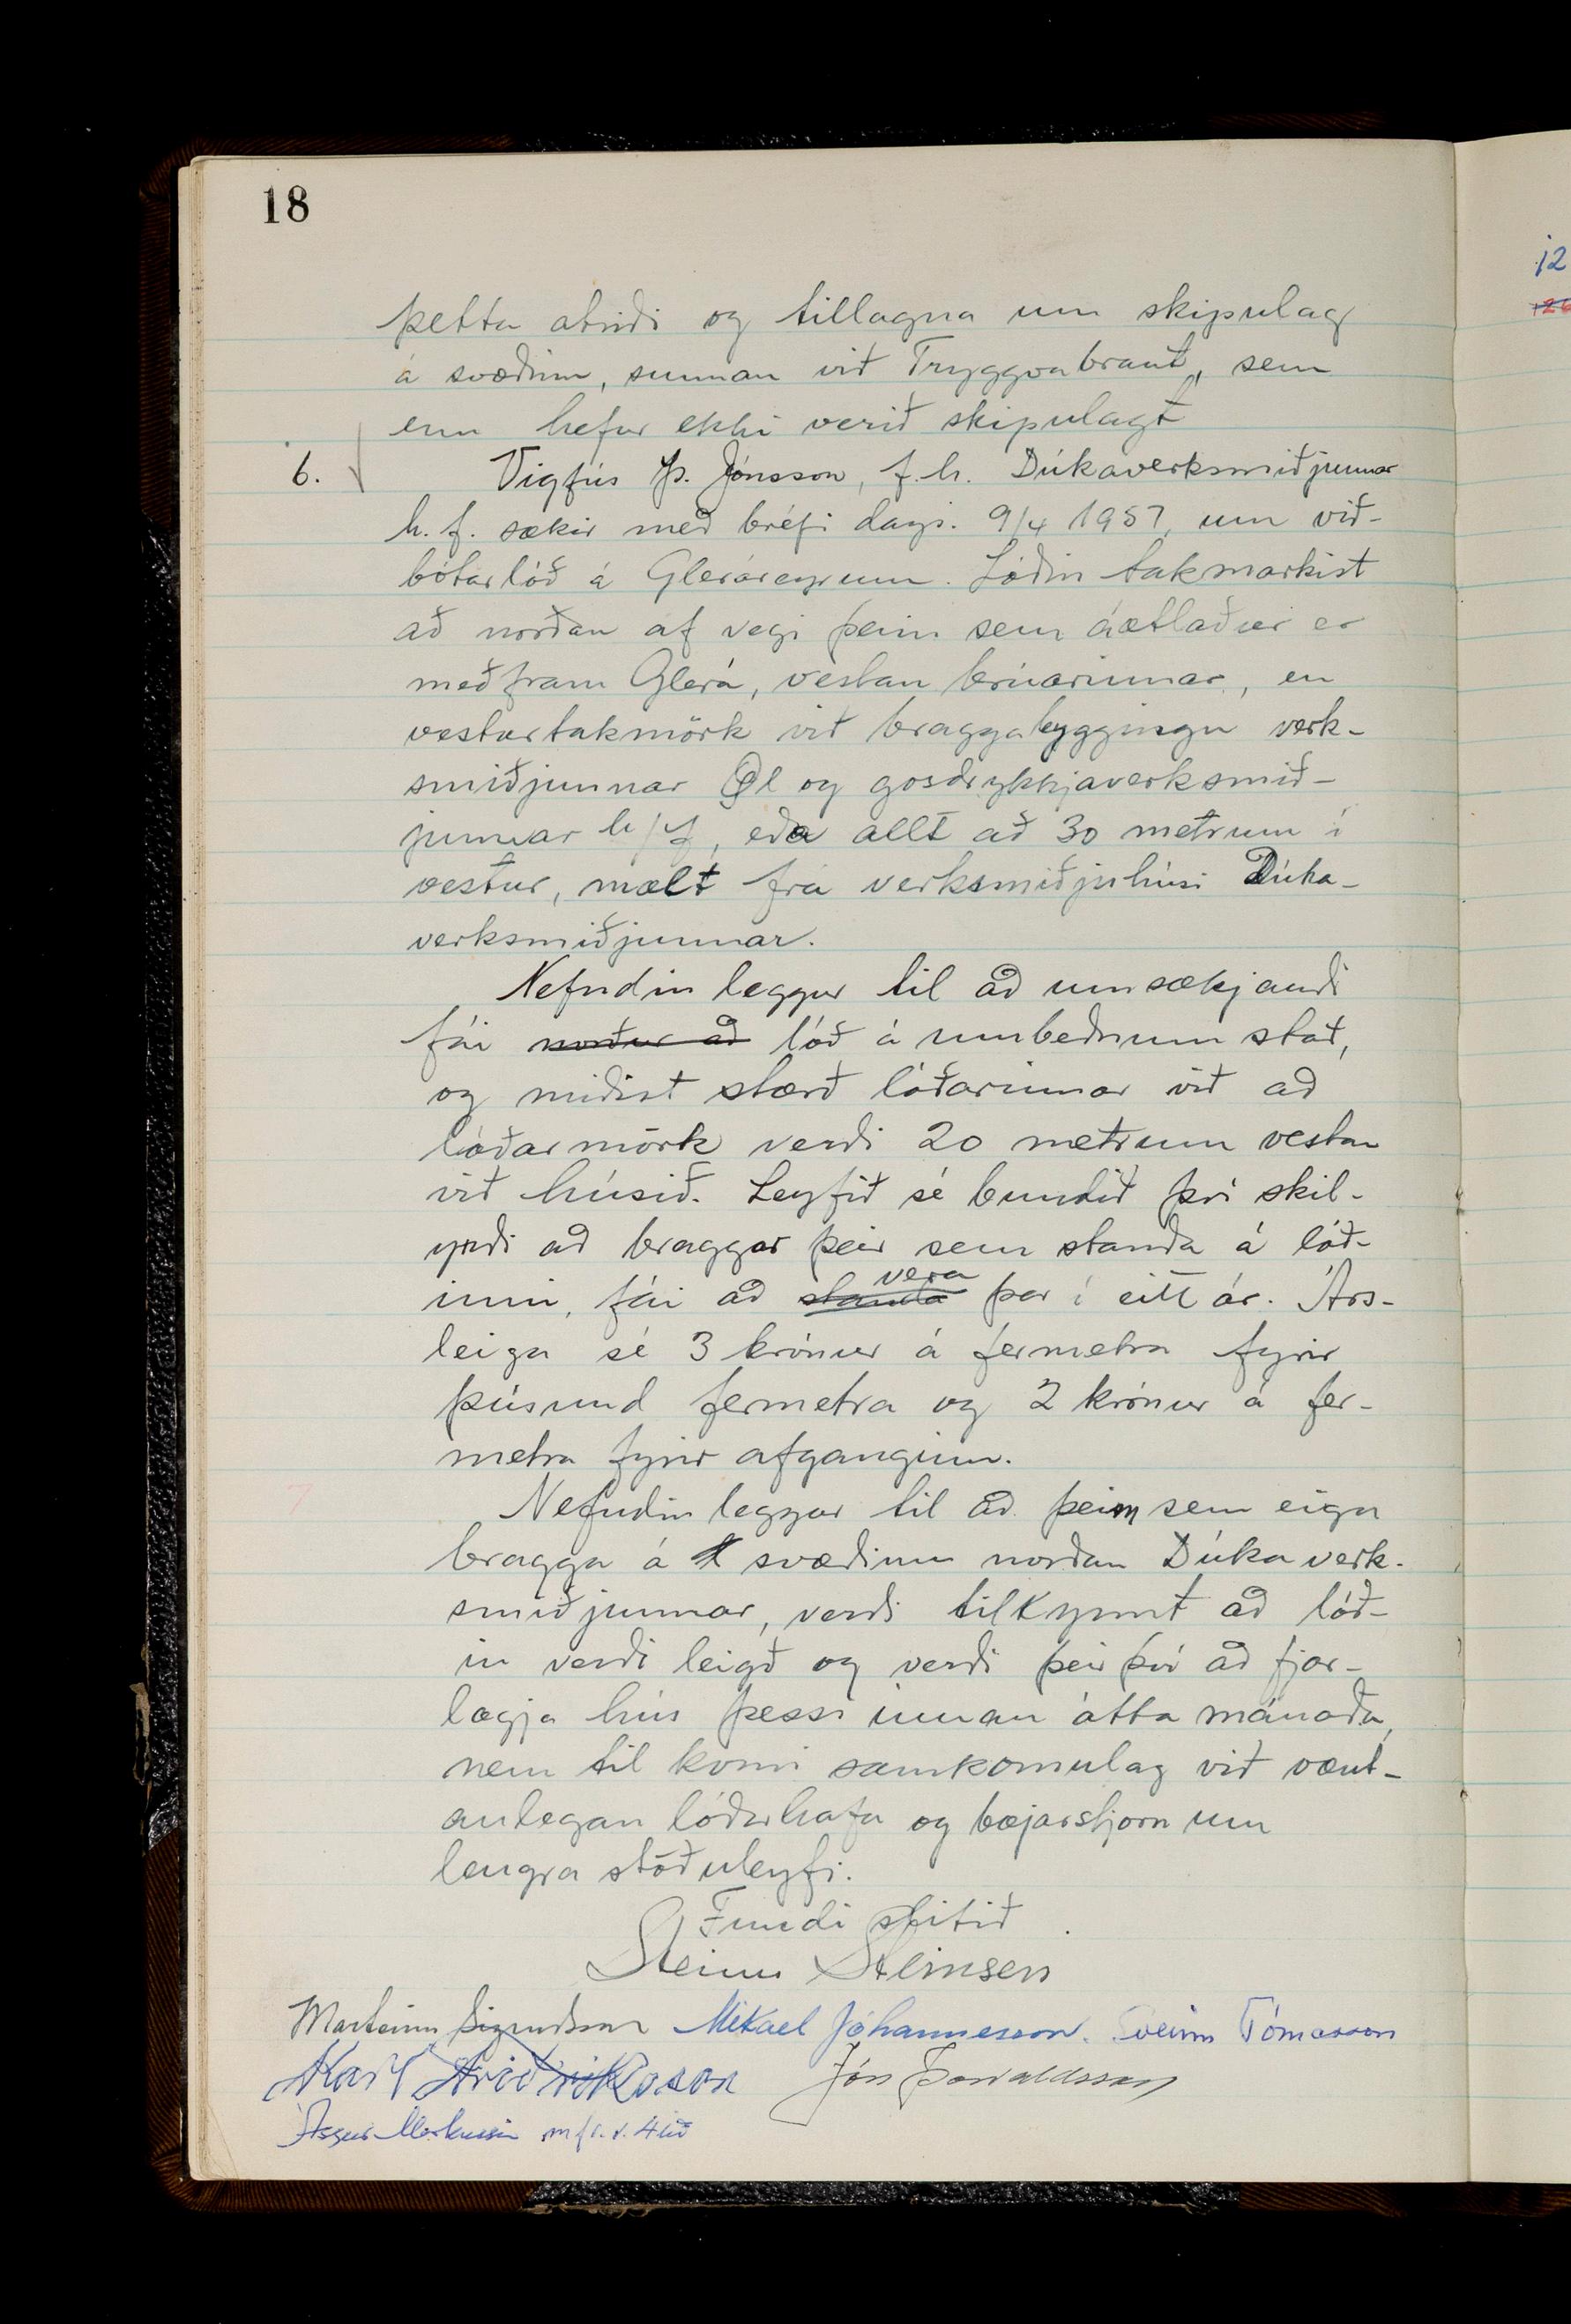 18
þetta atriði og tillagna um skipulag
á svæðinu, sunnan við Tryggvabraut, sem
enn hefur ekki verið skipulagt
6. Vigfús Þ. Jónsson, f.h. Dúkaverksmiðjunnar
h.f. sækir með bréfi dags. 9/4 1957, um við-
bótarlóð á Gleráreyrum. Lóðin takmarkist
að norðan af vegi þeim sem áætlaður er
meðfram Glerá, vestan brúarinnar, en
vesturtakmörk við braggabyggingu verk-
smiðjunnar Öl og gosdrykkjaverksmið-
junnar h/f, eða allt að 30 metrum í
vestur, mælt frá verksmiðjuhúsi Dúka-
verksmiðjunnar.
Nefndin leggur til að umsækjandi
fái norður að lóð á umbeðnum stað,
og miðist stærð lóðarinnar við að
lóðarmörk verði 20 metrum vestan
við húsið. Leyfið sé bundið því skil-
yrði að braggar þeir sem standa á lóð-
inni, fái að standa vera þar í eitt ár. Árs-
leiga sé 3 krónur á fermetra fyrir
þúsund fermetra og 2 krónur á fer-
metra fyrir afganginn.
7 Nefndin leggur til að þeim sem eiga
bragga á svæðinu norðan Dúkaverk-
smiðjunnar, verði tilkynnt að lóð-
in verði leigð og verði þeir því að fjar-
lægja hús þessi innan átta mánaða,
nem til komi samkomulag við vænt-
anlegan lóðarhafa og bæjarstjórn um
lengra stöðuleyfi.
Fundi slitið
Steinn Steinsen
Marteinn Sigurðsson Mikael Jóhannesson. Sveinn Tómasson
Karl Friðriksson Jón Þorvaldsson
Ásgeir Markússon
12